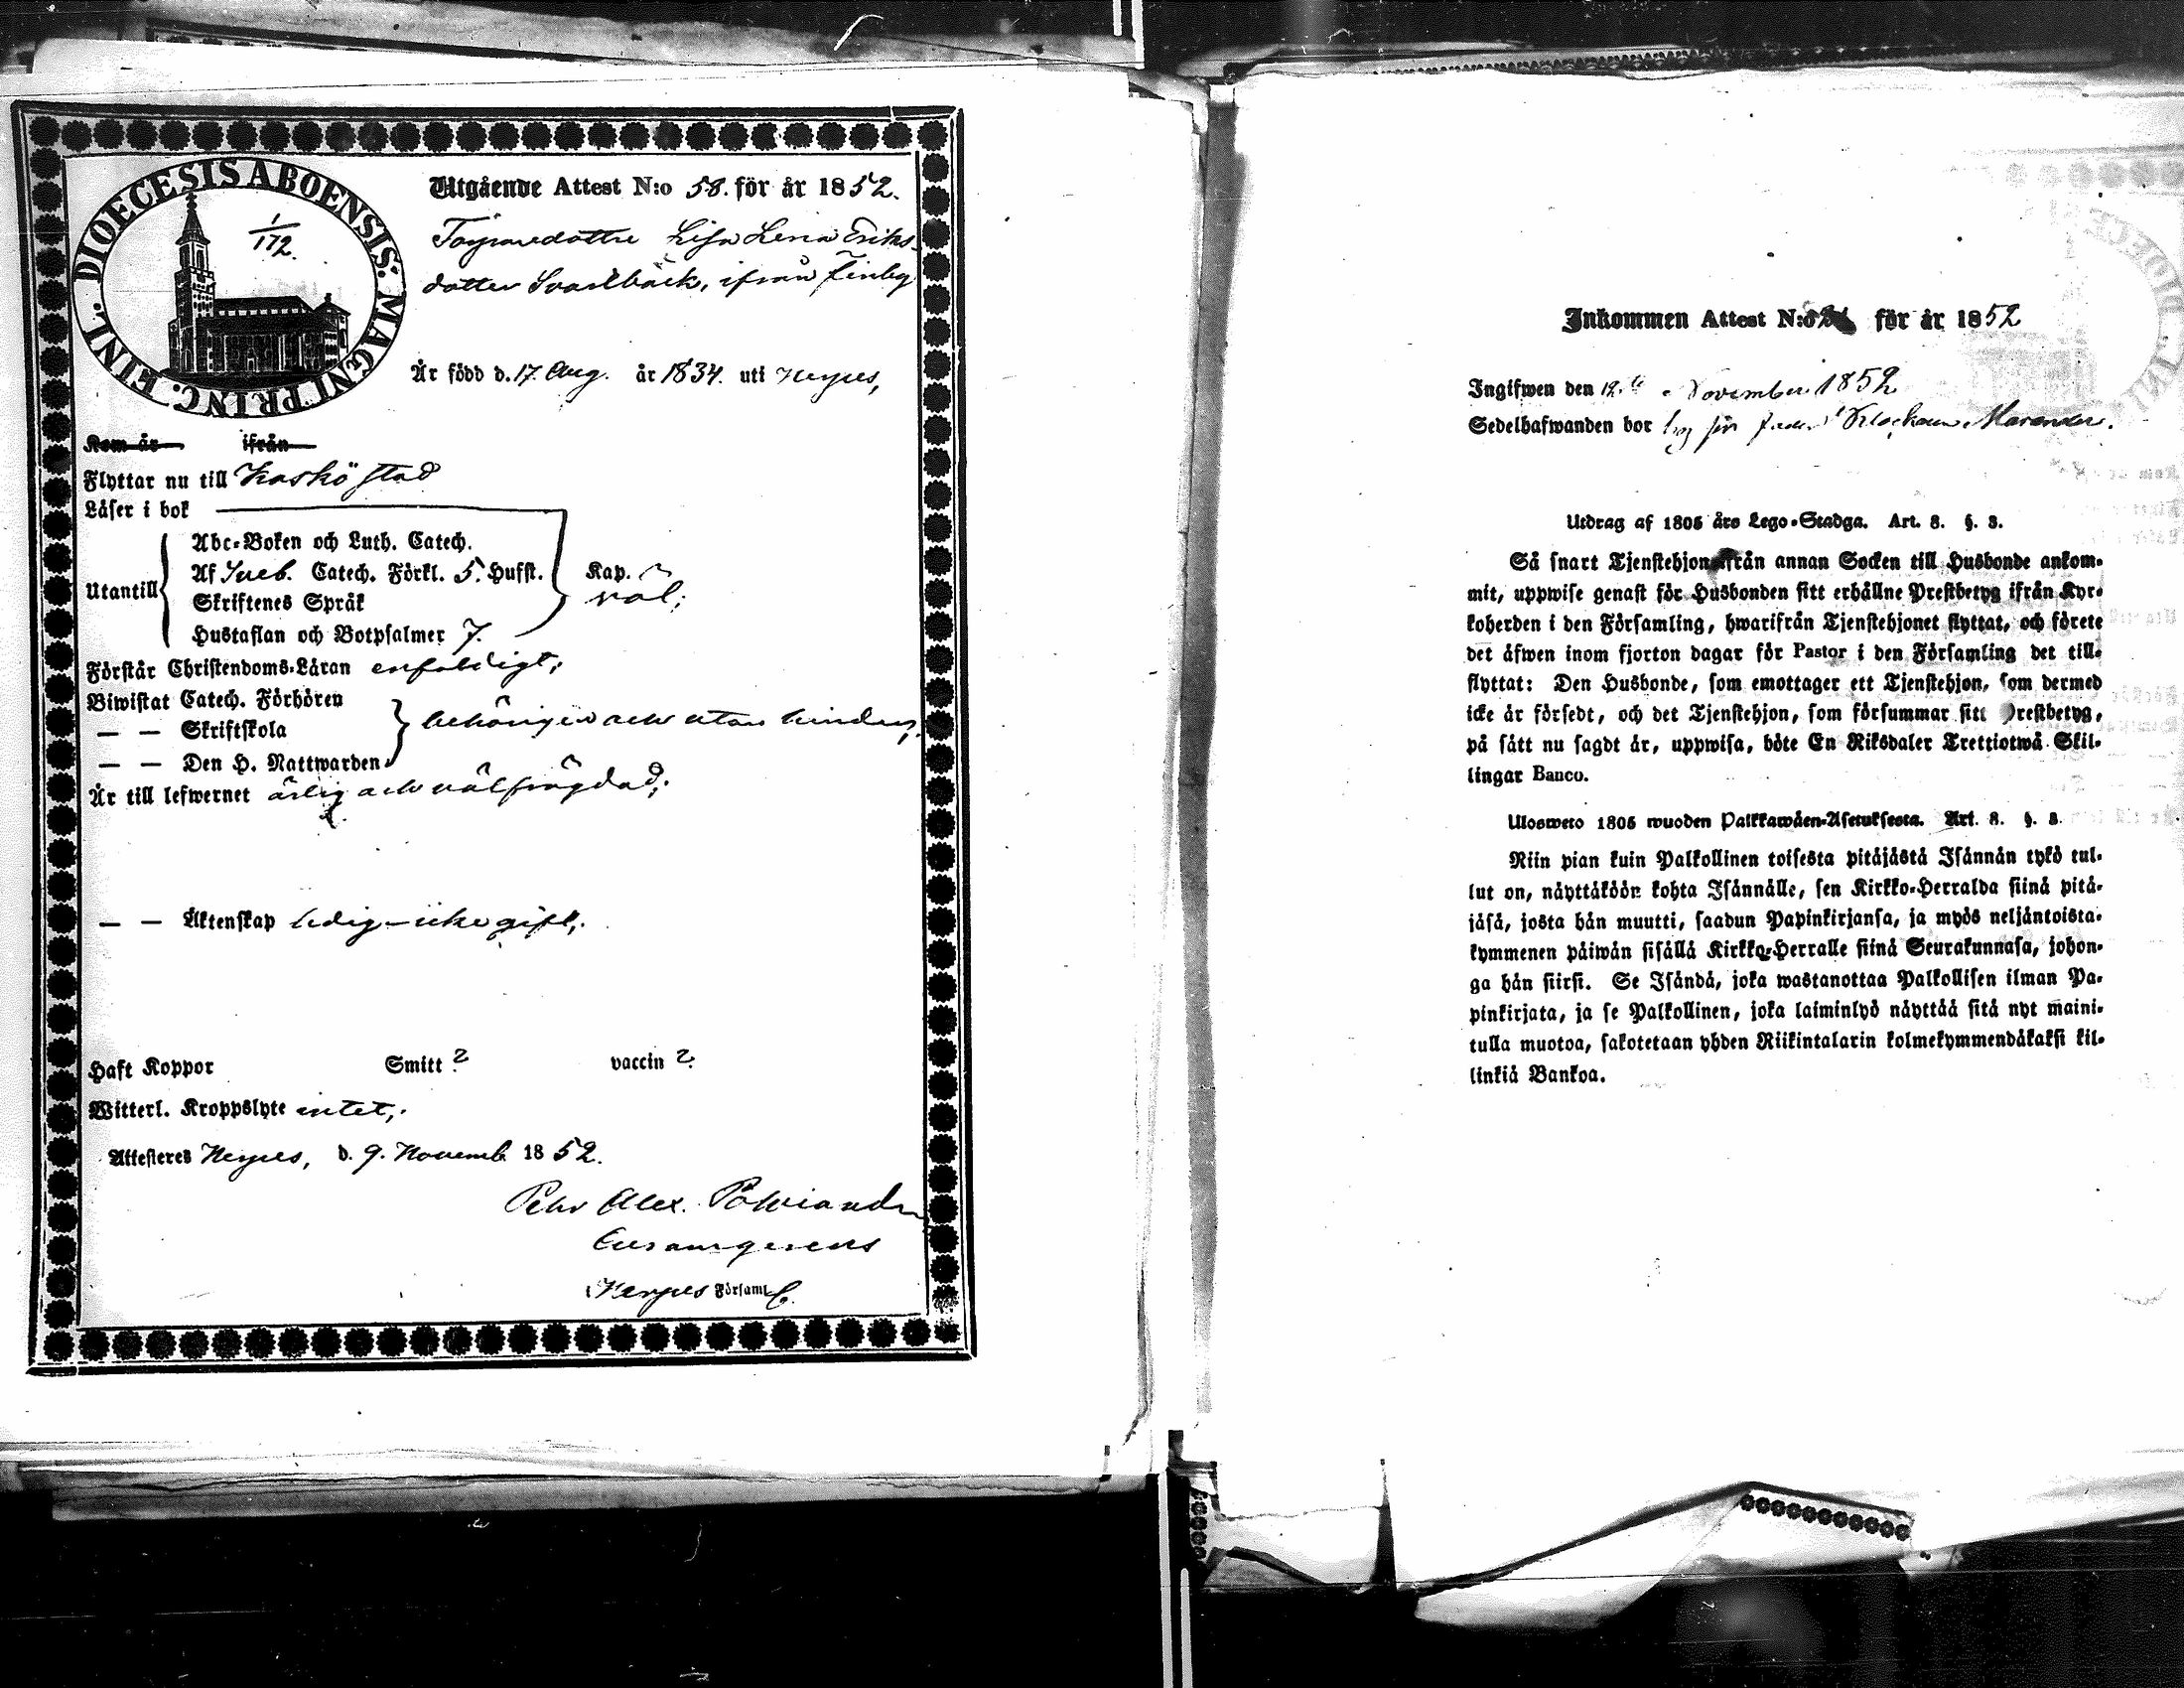 DIOECESIS ABOENSIS. MAGNI PRINC. FINL.
1/172.
Utgående Attest N:o 58. för år 1852.
Lisa Lena Eriks-
dotter Svartbäck, ifrån Finby
Är född d. 17. Aug. år 1834. uti Nerpes,
Kom år ifrån
Flyttar nu till Kaskö stad
Läser i bok
Abc-Boken och Luth. Catech.
Af Sveb. Catech. Förkl. 5. Hufst.
Utantill
Skriftenes Språk
Hustaflan och Botpsalmer 7.
Kap.
väl;
Förstår Christendoms-Läran enfaldigt;
Biwistat Catech. Förhören
— — Skriftskola
— — Den H. Nattwarden
behörigen och utan hinder;
Är till lefwernet ärlig och välfrägdad;
— — Äktenskap ledig – icke gift;
Haft Koppor Smitt ? vaccin ?
Witterl. Kroppslyte intet;
Attesteres Nerpes, d. 9. Novemb. 1852.
Pehr Alex.
Curam gerens
i Nerpes Församl.
Inkommen Attest N:o för år 1852
Ingifwen den 12 November 1852
Sedelhafwanden bor hos sin
Utdrag af 1805 års Lego-Stadga. Art. 8. §. 3.
Så snart Tjenstehjon ifrån annan Socken till Husbonde ankom-
mit, uppwise genast för Husbonden sitt erhållne Prestbetyg ifrån Kyr-
koherden i den Församling, hwarifrån Tjenstehjonet flyttat, och förete
det äfwen inom fjorton dagar för Pastor i den Församling det till-
flyttat: Den Husbonde, som emottager ett Tjenstehjon, som dermed
icke är försedt, och det Tjenstehjon, som försummar sitt Prestbetyg,
på sätt nu sagdt är, uppwisa, böte En Riksdaler Trettiotwå Skil-
lingar Banco.
Ulosweto 1805 wuoden Palkkawäen-Asetuksesta. Art. 8. §. 3.
Niin pian kuin Palkollinen toisesta pitäjästä Isännän tykö tul-
lut on, näyttäköön kohta Isännälle, sen Kirkko-Herralda siinä pitä-
jäsä, josta hän muutti, saadun Papinkirjansa, ja myös neljäntoista-
kymmenen päiwän sisällä Kirkko-Herralle siinä Seurakunnasa, johon-
ga hän siirsi. Se Isändä, joka wastanottaa Palkollisen ilman Pa-
pinkirjata, ja se Palkollinen, joka laiminlyö näyttää sitä nyt maini-
tulla muotoa, sakotetaan yhden Riikintalarin kolmekymmendäkaksi kil-
linkiä Bankoa.